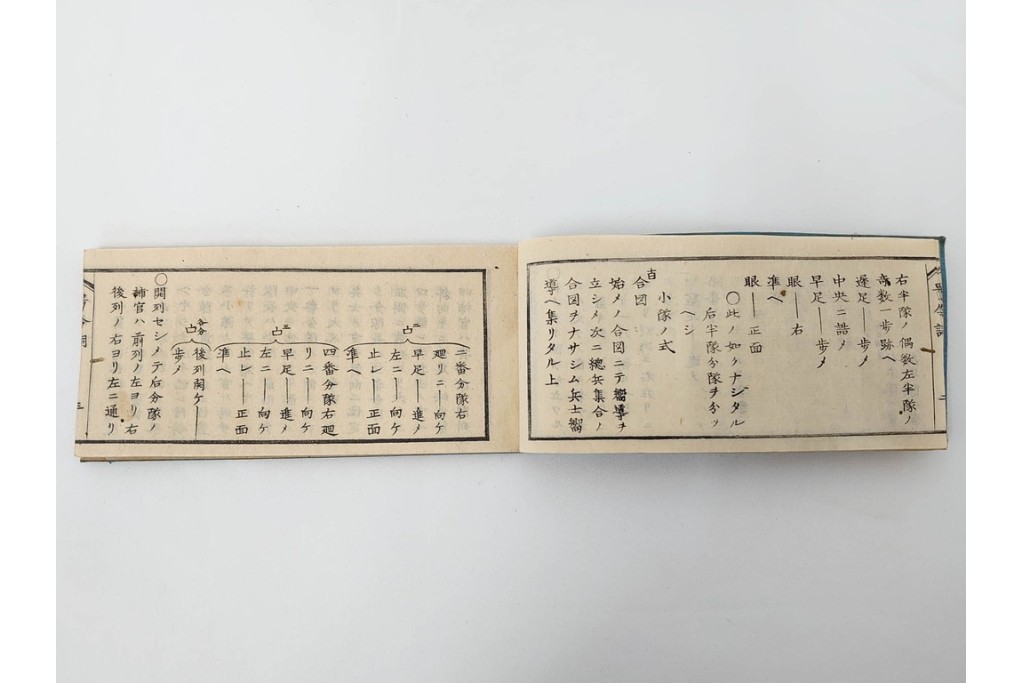 右半隊ノ偶数左半隊ノ
奇数一歩跡ヘ
遅足――歩メ
中央ニ詰メ
早足――歩メ
眼――右
準ヘ
眼――正面
○此ノ如クナシタル
后半隊分隊ヲ分ツ
ヘシ
小隊ノ式
合図
始メノ合図ニテ嚮導ヲ
立シメ次ニ總兵集合ノ
合図ヲナサシム兵士嚮
導ヘ集リタル上
二番分隊右
廻リニ――向ケ
早足――進メ
左ニ――向ケ
止レ――正面
準ヘ
四番分隊右廻
リニ――向ケ
早足――進メ
左ニ――向ケ
止レ――正面
準ヘ
後列開ケ
歩メ
○開列セシメテ后分隊ノ
官ハ前列ノ左ヨリ右
後列ノ右ヨリ左ニ通リ